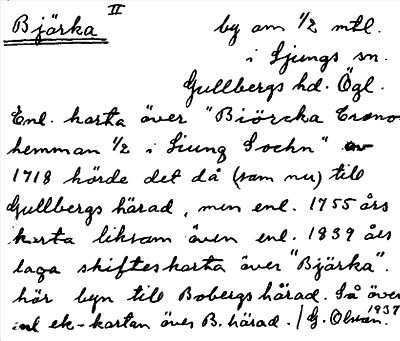 Bjärka II
by om 1/2 mtl.
i Ljungs sn.
Gullbergs hd. Ögl.
Enl. karta över "Biörcka Crono
hemman 1/2 i Liung Sochn" av
1718 hörde det då (som nu) till
Gullbergs härad, men enl. 1755 års
karta liksom även enl. 1839 års
laga skifteskarta över "Bjärka".
hör byn till Bobergs härad. Så även
enl ek-kartan över B. härad. / G. Olson. 1937.